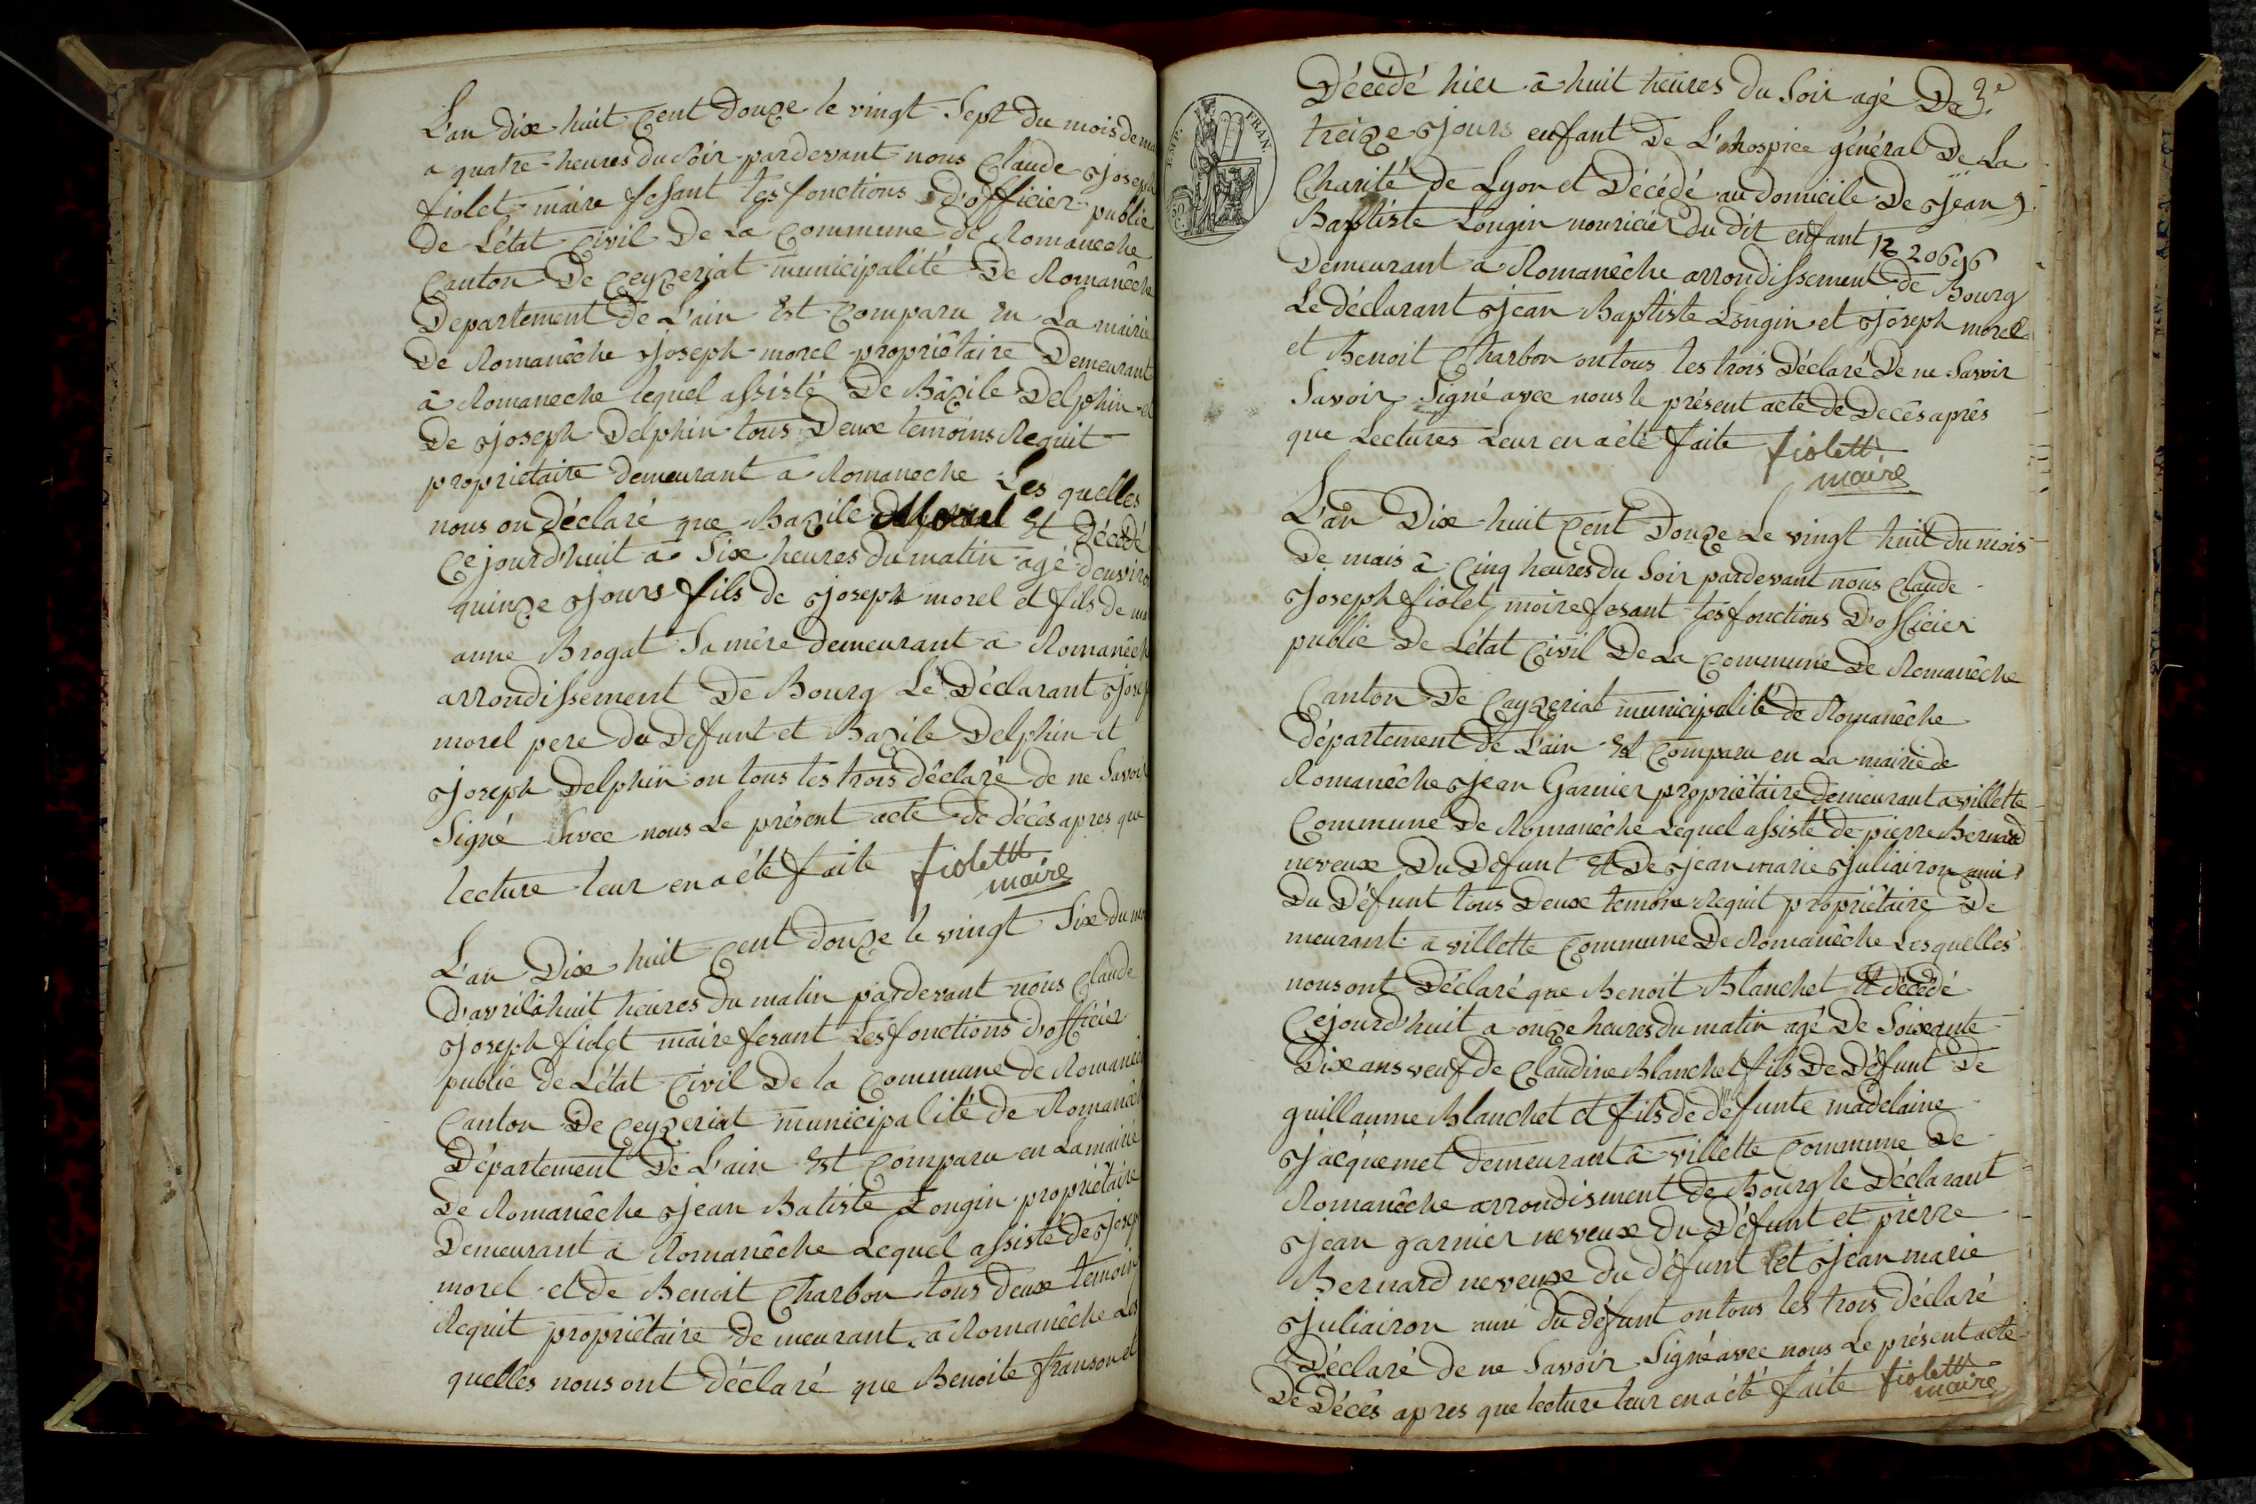 L'an dix huit cent douze le vingt Sept du mois de
a quatre heures du Soir pardevant nous Claude joseph
fiolet maire fesant les fonctions d'officier public
de L'état Civil De La Commune de Romaneche
Canton De Ceyzeriat municipalité De Romanêche
Departement De L'ain Est Comparu En La mairie
De Romanêche joseph morel propriêtaire Demeurant
â Romaneche lequel assisté De Bâzile Delphin et
De joseph Delphin tous Deux temoins Requit
proprietaire demeurant a Romaneche Les quelles
nous on déclaré que Bazile Morel Et Décédé
Cejourd'huit â Six heures du matin agé d'enviro
quinze jours fils de joseph morel et fils de
anne Brogat Sa mêre demeurant â Romanêch
arrondissement De Bourg Le Déclarant josep
morel pere du Defunt et Bazile Delphin et
joseph Delphin on tous les trois déclaré de ne Savoir
Signé avec nous Le présent acte de décês apres que
lecture leur en a été faite fiolett
maire
L'an Dix huit Cent douze le vingt Six du mo
D'avril â huit heures du matin pardevant nous Claude
joseph fiolet maire fesant Les fonctions d'officier
public de L'état Civil De la Commune de Romanêc
Canton De Ceyzeriat municipalité de Romanêch
Département De L'ain Est Comparu en La mairie
De Romanêche jean Batiste Longin propriétaire
Demeurant a Romanêche Lequel assisté de josep
morel et de Benoit Charbon tous deux temoin
Requit propriêtaire de meurant a Romanêche Les
quelles nous ont déclaré que Benoite franson et
EMP. FRAN.
3e
Décédé hier â huit heures du Soir agé De
treize jours enfant De L'hospice général De La
Charité de Lyon et Décédé au domicile De jean
Baptiste Longin nouricier du dit enfant
Demeurant a Romanêche arrondissement de Bourg
Le déclarant jean Baptiste Longin et joseph morel
et Benoit Charbon on tous les trois Déclaré De ne Savoir
Savoir Signé avec nous le présent acte de Decês aprês
que Lectures Leur en a été faite fiolett
maire
L'an Dix huit Cent Douze Le vingt huit du mois
De mais â Cinq heures du Soir pardevant nous Claude
joseph fiolet maire fesant les fonctions D'officier
public De L'état Civil De La Commune De Romanêche
Canton De Cayzeriat municipalité de Romanêche
département De L'ain Est Comparu en La mairie de
Romanêche jean Garnier propriêtaire demeurant a villette
Commune De Romanêche Lequel assisté de pierre Bernard
neveux Du Defunt Et De jean marie juliairon ami
Du Défunt tous Deux temoin Requit propriêtaire De
meurant a villette Commune De Romanêche Lesquelles
nous ont Déclaré que Benoit Blanchet Et décédé
Cejourd'huit a onze heures du matin agé De Soixante
Dix ans veuf de Claudine Blanchet fils De Défunt De
guillaume Blanchet et fils de défunte madelaine
jacquemet demeurant â villette Commune De
Romanêche arrondisment de Bourg le Déclarant
jean garnier neveux du Défunt et pierre
Bernard neveux du défunt et jean marie
juliairon ami du défunt on tous les trois déclaré
Déclaré de ne Savoir Signé avec nous Le présent acte
De Décês apres que lecture leur en a été faite fiolett
maire